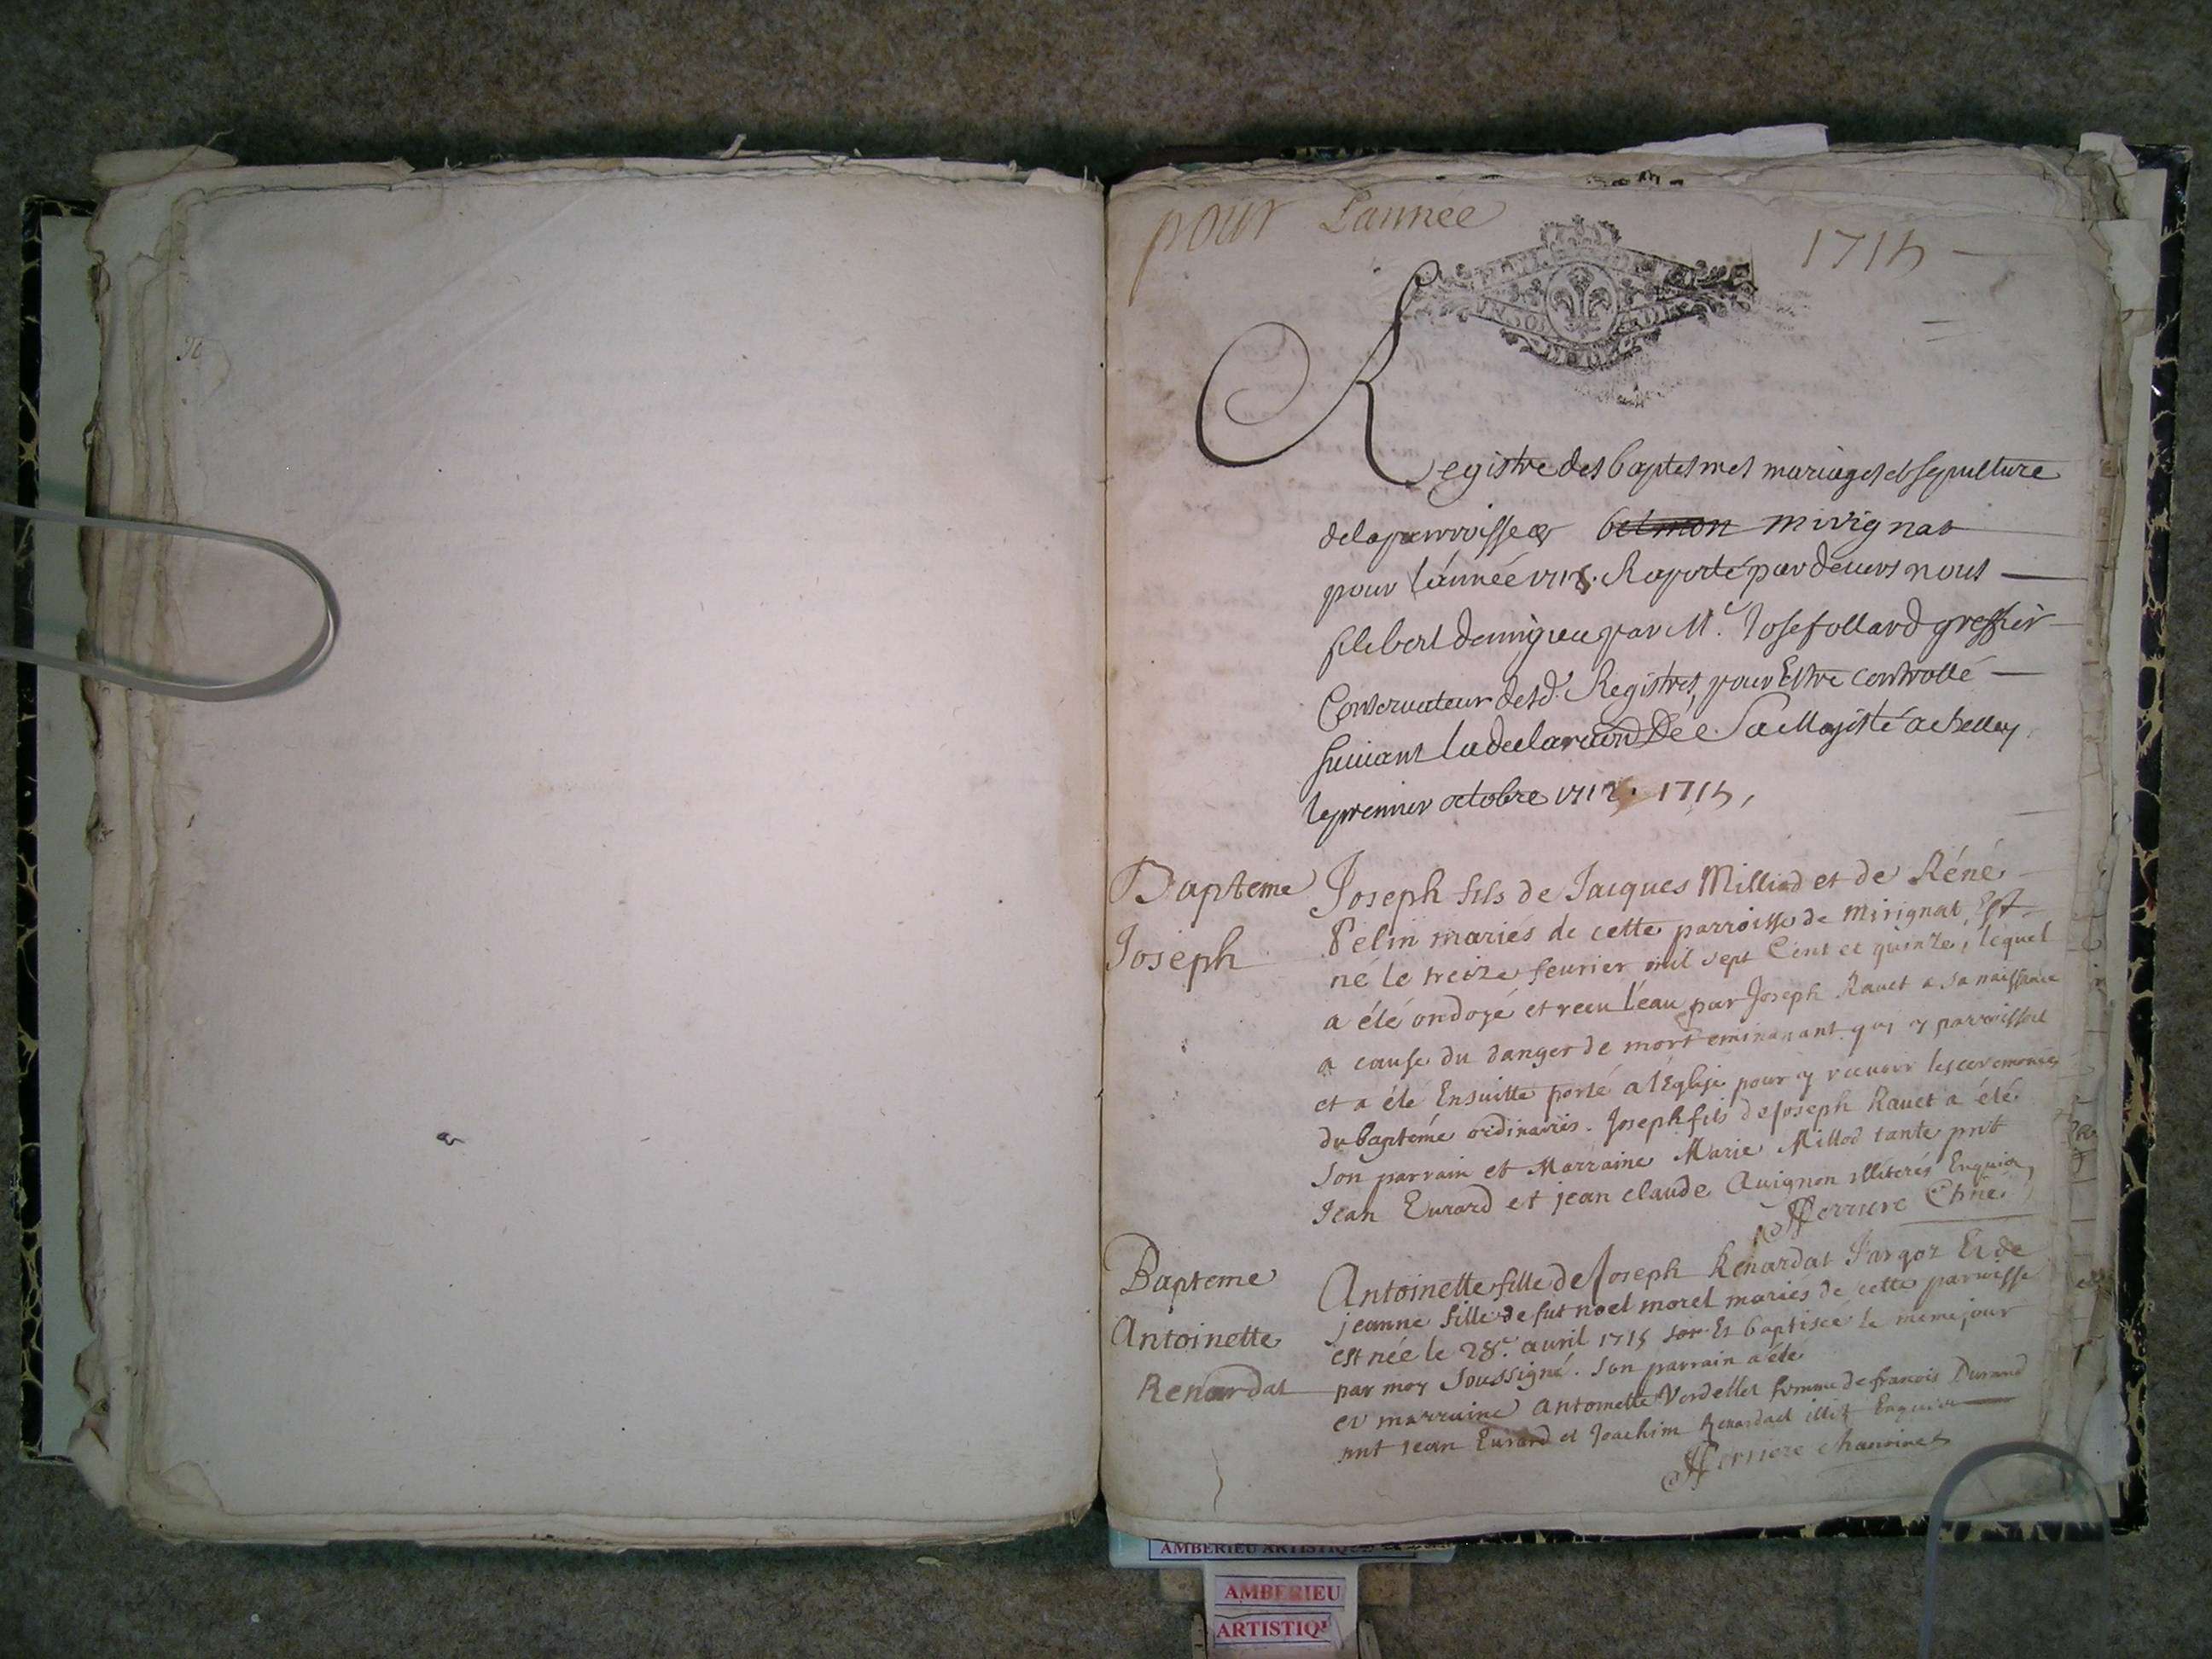 pour L'année 1715
Registre des baptesmes mariages et sepulture
de la parroisse de belmon mirignat
pour l'année 1715. Raporté par devers nous
par Mr. Josef ollard greffier
Conservateur desd. Registres, pour Estre controllé
suivant la declaration De Sa Majesté a belley
le premier octobre 1712. 1715,
Bapteme
Joseph
Joseph fils de Jacques Milliod et de Réné
Pelin mariés de cette parroisse de Mirignat, Est
né le treize feurier mil sept Cent et quinze, lequel
a été ondoyé et receu l'eau par Joseph Rauet a sa naissance
a cause du danger de mort eminanant qui y paroissoit
et a été Ensuitte porté a l'Eglise pour y receuoir les ceremonies
du baptéme ordinaires. Joseph fils de Joseph Rauet a été
Son parrain et Marraine Marie Millod tante pnts
Jean Eurard et jean claude Auignon illiterés Enquis,
Ferriere Chne
Bapteme
Antoinette
Renardat
Antoinette fille de Joseph Renardat Et de
jeanne fille de fut noel morel mariés de cette parroisse
est née le 28e. auril 1715 Et baptisée le meme jour
par moy Soussigné. Son parrain a été
et marraine Antoinette Verdellet femme de francois Durand
pnt jean Eurard et Joachim Renardat illit Enquis
Ferriere chanoine
AMBERIEU ARTISTIQ
AMBERIEU
ARTISTIQ